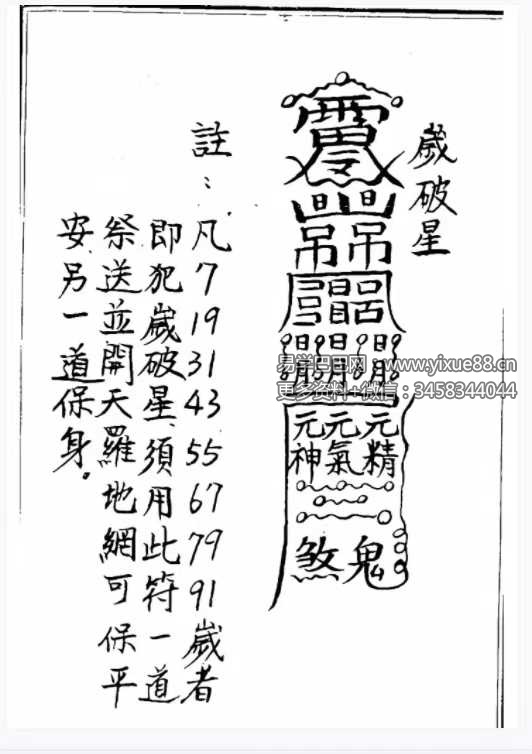 歲破星
日日
吊吊
元精
元氣
元神
鬼
煞
註：
凡7 19 31 43 55 67 79 91歲者
即犯歲破星須用此符一道
祭送並開天羅地網可保平
安另一道保身。
易学巴巴网：www.yixue88.cn
更多资料+微信：3458344044